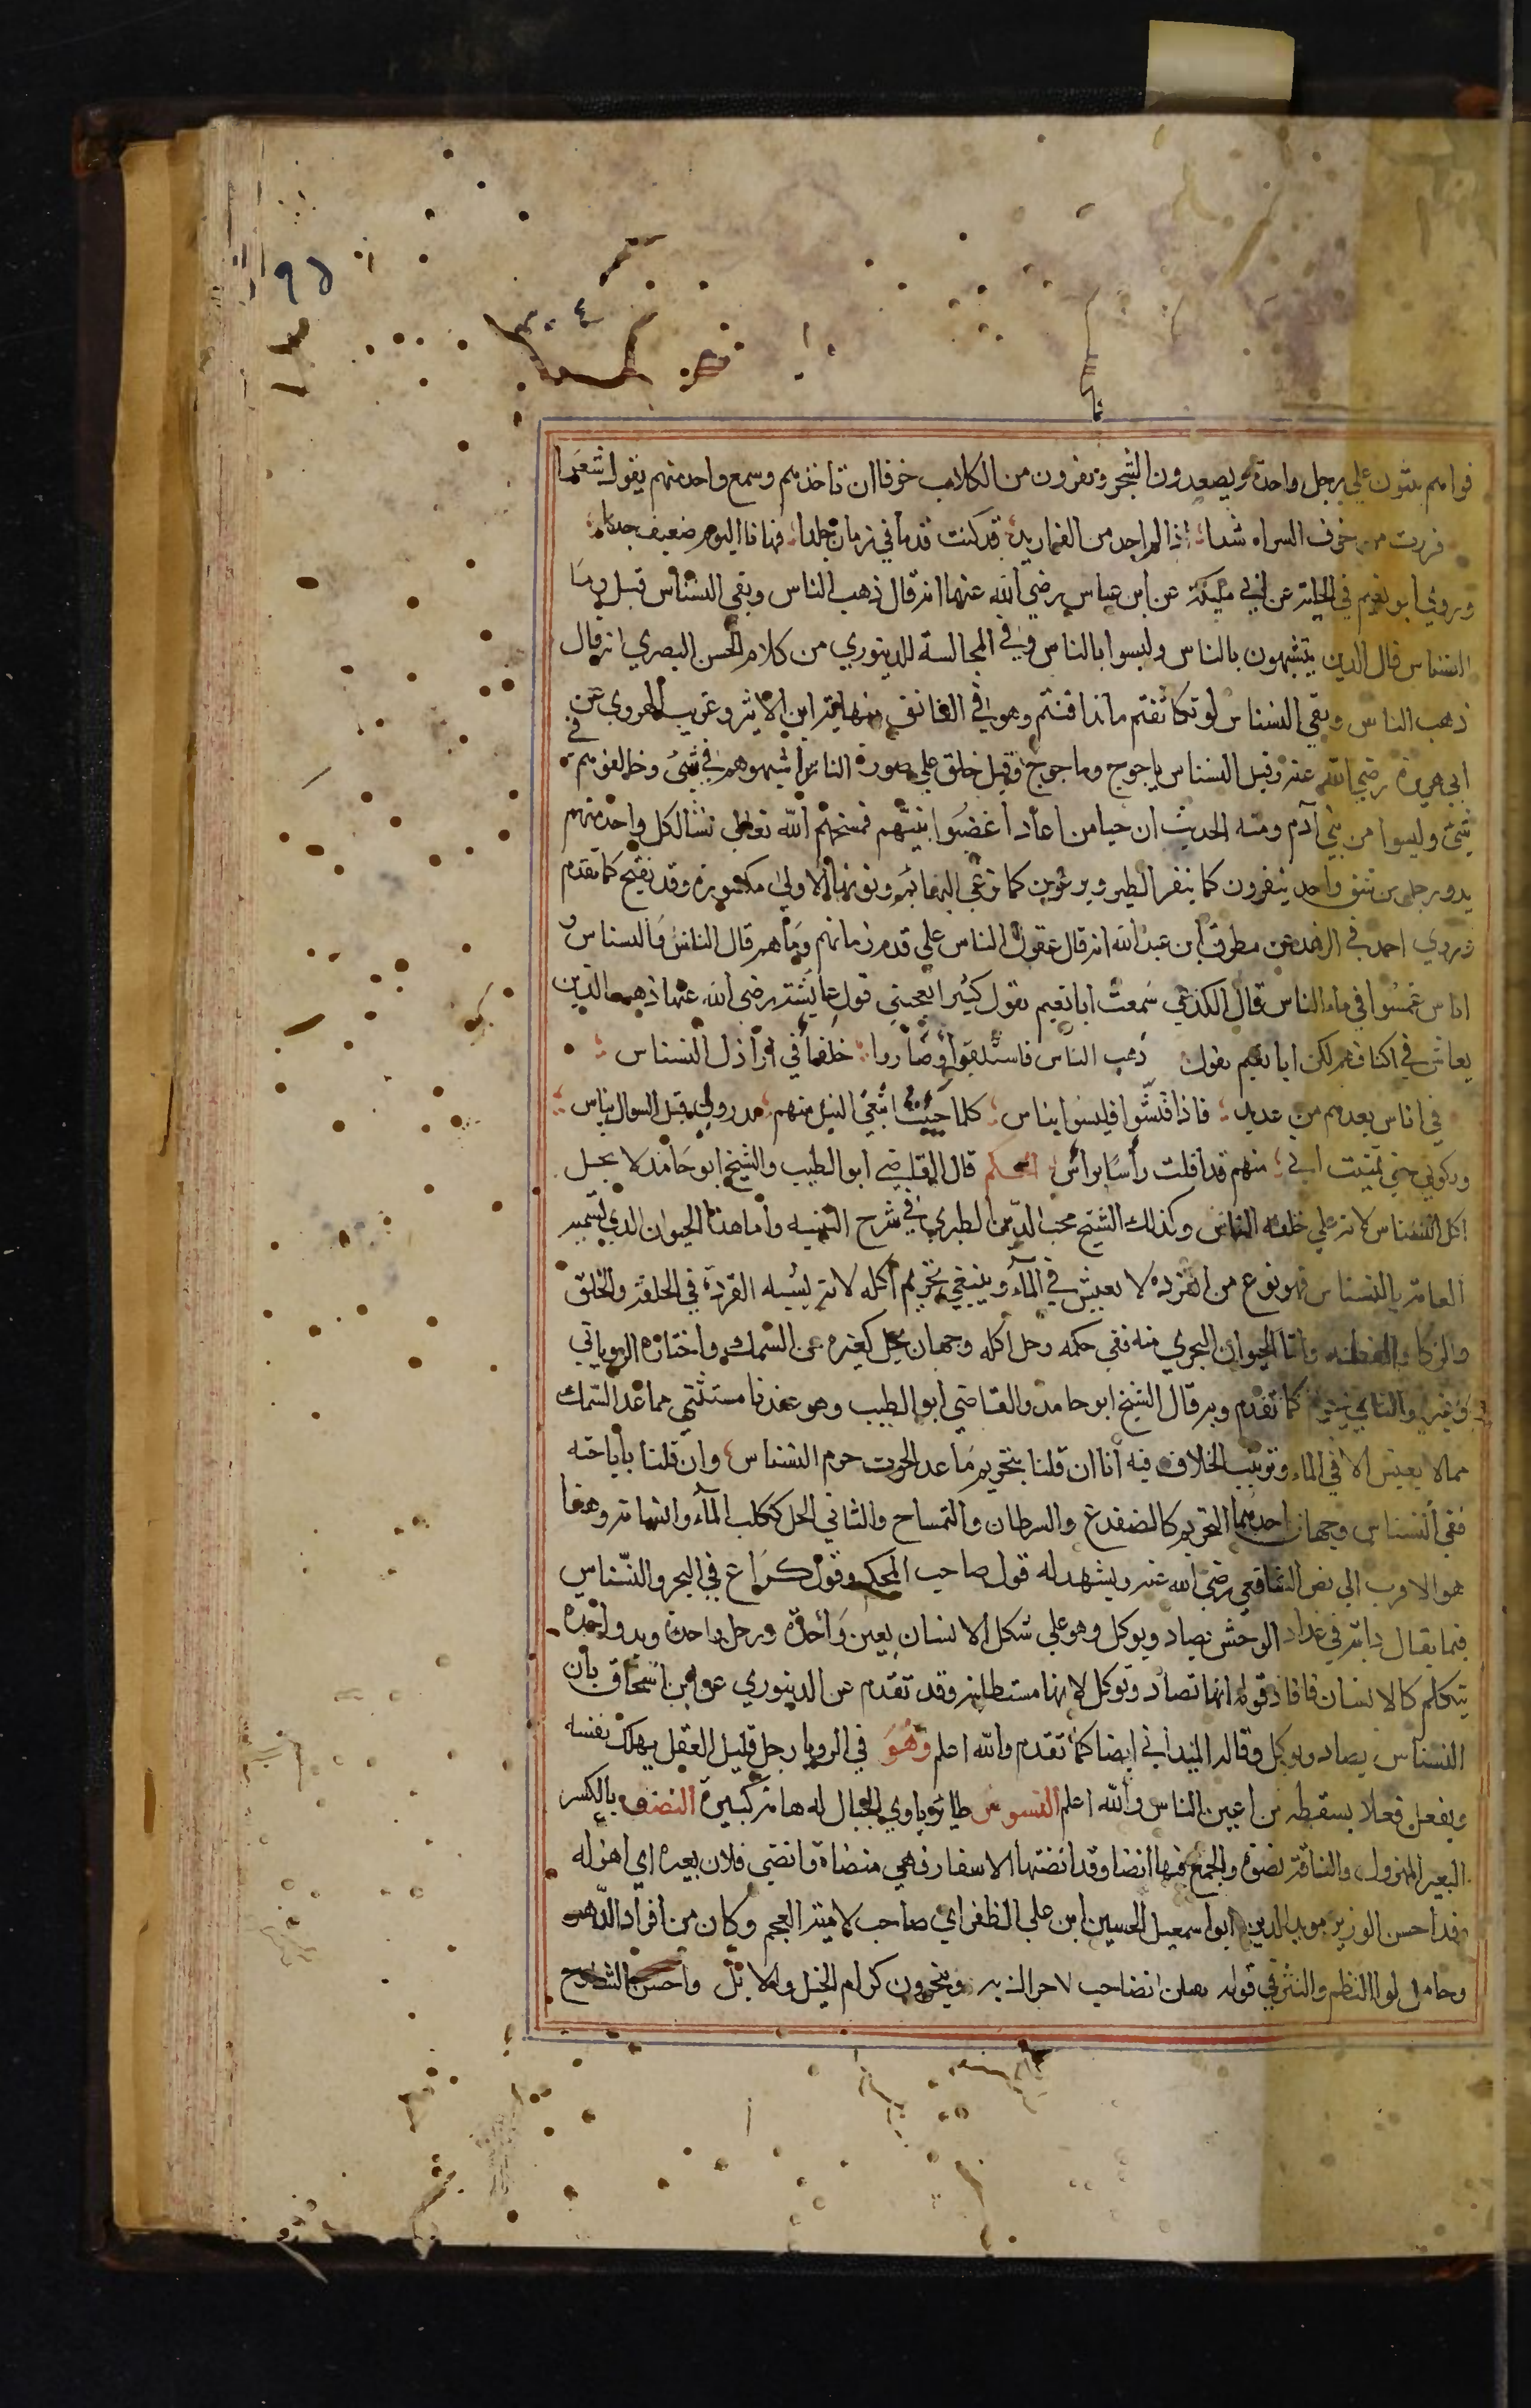 ٩٥
٣٠٤
فواهم يثبون علي رجل واحدة ويصعدون الشجر ويفرون من الكلاب خوفا ان تاخذهم وسمع واحد منهم يقول شعرا
فررت من خوف السراه شدا ؛ اذا لم اجد من الفرار بدا ؛ قد كنت قدما في زمان جلدا ؛ فها انا اليوم ضعيف جدا
وروي ابو نعيم في الحلية عن ابي مليكة عن ابن عباس رضي الله عنهما انه قال ذهب الناس وبقي النسناس قيل وما
النسناس قال الذين يتشبهون بالناس وليسوا بالناس وفي المجالسة للدينوري من كلام الحسن البصري انه قال
ذهب الناس وبقي النسناس لو تكاشفتم ما تدافنتم وهو في الفائق ونهاية ابن الاثير وغريب الهروي عن
ابي هريرة رضي الله عنه وقيل النسناس ياجوج وماجوج وقيل خلق علي صورة الناس اشبهوهم في شيئ وخالفوهم في
شيئ وليسوا من بني آدم ومنه الحديث ان حيا من اعاد اغضبوا نبيهم فمسخهم الله تعالى نسناسا لكل واحد منهم
يد ورجل من شق واحد ينفرون كما ينفر الطير ويرعون كما ترعي البهائم ونونها الاولي مكسورة وقد تفتح كما تقدم
وروي احمد في الزهد عن مطرف ابن عبد الله انه قال عقول الناس علي قدر زمانهم وما هم قال الناس والنسناس و
اناس غمسوا في ماء الناس قال الكديمي سمعت ابا نعيم يقول كثيرا يعجبني قول عائشة رضي الله عنها ذهب الذين
يعاش في اكنافهم لكن ابا نعيم يقول ذهب الناس فاستقلوا وصاروا ؛ خلفا في اراذل النسناس ؛
في اناس يعدهم من عديد ؛ فاذا فتشوا فليسوا بناس ؛ كلما جيت ابتغي النيل منهم بدروني قبل السوال بياس ؛
وبكوني حتي تمنيت اني ؛ منهم قد افلت رأسا براس ؛ الحكم قال القاضي ابو الطيب والشيخ ابو حامد لا يحل
اكل النسناس لانه علي خلقه الناس وكذلك الشيخ محب الدين الطبري في شرح التنبيه واما هذا الحيوان الذي تسميه
العامة بالنسناس فهو نوع من القردة لا يعيش في الماء وينبغي تحريم اكله لانه يشبه القردة في الخلقة والخلق
والذكا والفطنه واما الحيوان البحري منه ففي حكمه وحل اكله وجهان يحل كغيره من السمك واختاره الروياني
وغيره والثاني يحرم كما تقدم وبه قال الشيخ ابو حامد والقاضي ابو الطيب وهو عندنا مستثني مما عدا السمك
مما لا يعيش الا في الماء وترتيب الخلاف فيه انا ان قلنا بتحريم ما عدا الحوت حرم النسناس وان قلنا بأباحته
ففي النسناس وجهان احدهما التحريم كالضفدع والسرطان والتمساح والثاني الحل ككلب الماء وانسانه وهذا
هو الاقرب الي نص الشافعي رضي الله عنه ويشهد له قول صاحب المحكم وقول كراع في البحر والنسناس
فيما يقال دابة في عداد الوحش تصاد وتوكل وهو علي شكل الانسان بعين واحدة ورجل واحدة ويد واحدة
يتكلم كالانسان فافاد قوله انها تصاد وتوكل لانها مستطابه وقد تقدم عن الدينوري عن ابن اسحاق بان
النسناس يصاد ويوكل وقاله الميداني ايضا كما تقدم والله اعلم وهو في الرويا رجل قليل العقل يهلك نفسه
ويفعل فعلا يسقطه من اعين الناس والله اعلم النسوس طائر ياوي الجبال له هامة كبيرة النضو بالكسر
البعير المهزول والناقة نضوة والجمع فيها انضا وقد انضتها الاسفار فهي منضاة وانضي فلان بعيره اي اهزله
وقد احسن الوزير مويد الدين ابو اسمعيل الحسين ابن علي الطغراي صاحب لامية العجم وكان من افراد الدهر
وحامل لوا النظم والنثر في قوله يقلن انضا حب لا حراك به وينحرون كرام الخيل والابل واحسن الشارح